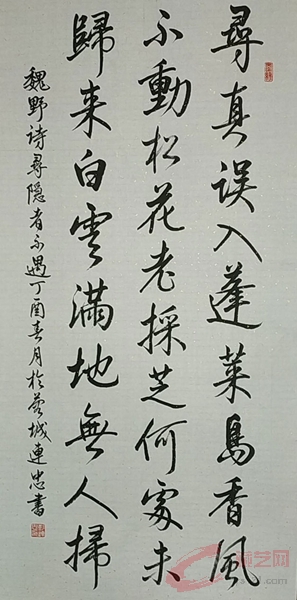 尋真误入蓬莱島香風
不動松花老採芝何處未
歸来白雲滿地無人掃
魏野诗尋隐者不遇丁酉春月於蓉城連忠書